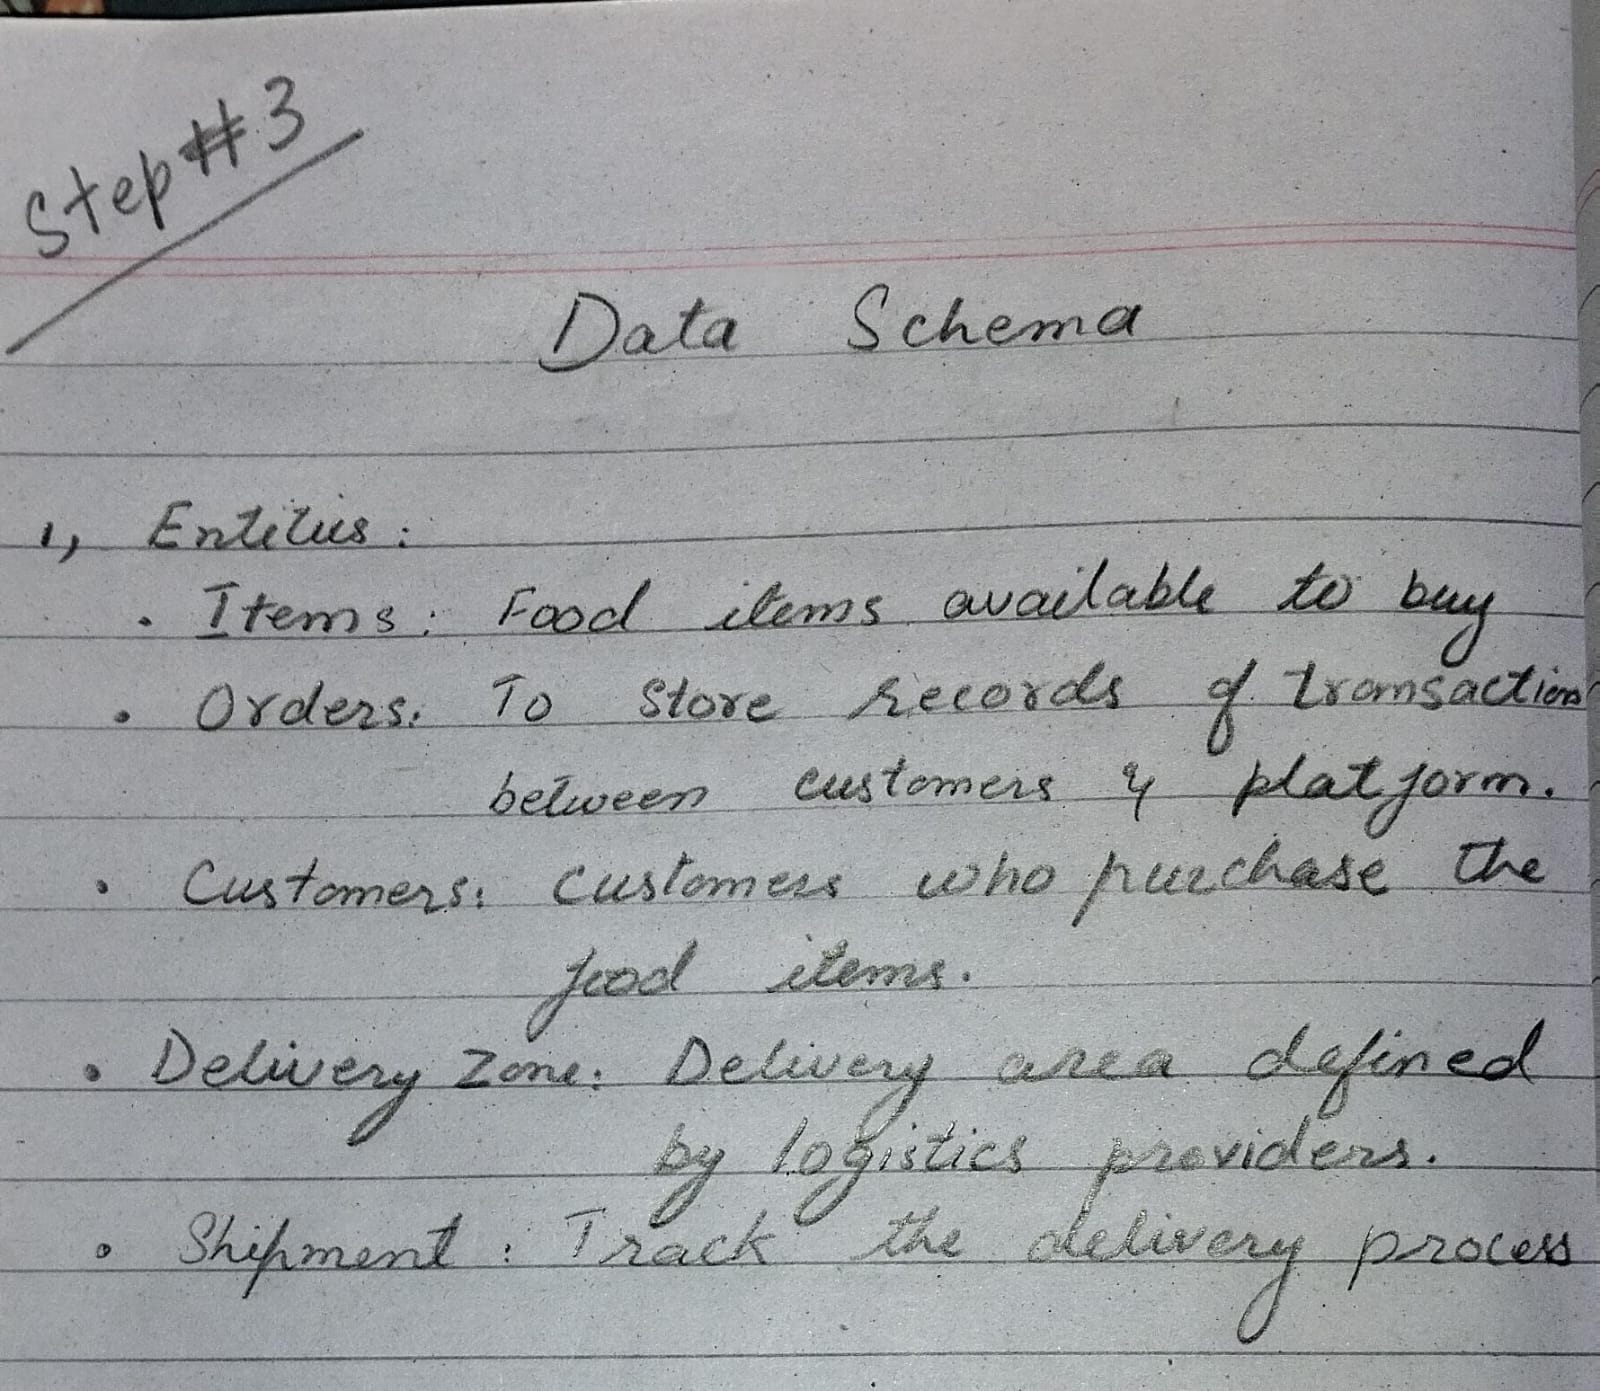 Step #3
Data Schema
1, Entities:
• Items: Food items available to buy
• Orders: To Store records of transaction
between customers & platform.
• Customers: customers who purchase the
food items.
• Delivery Zone: Delivery area defined
by logistics providers.
• Shipment: Track the delivery process